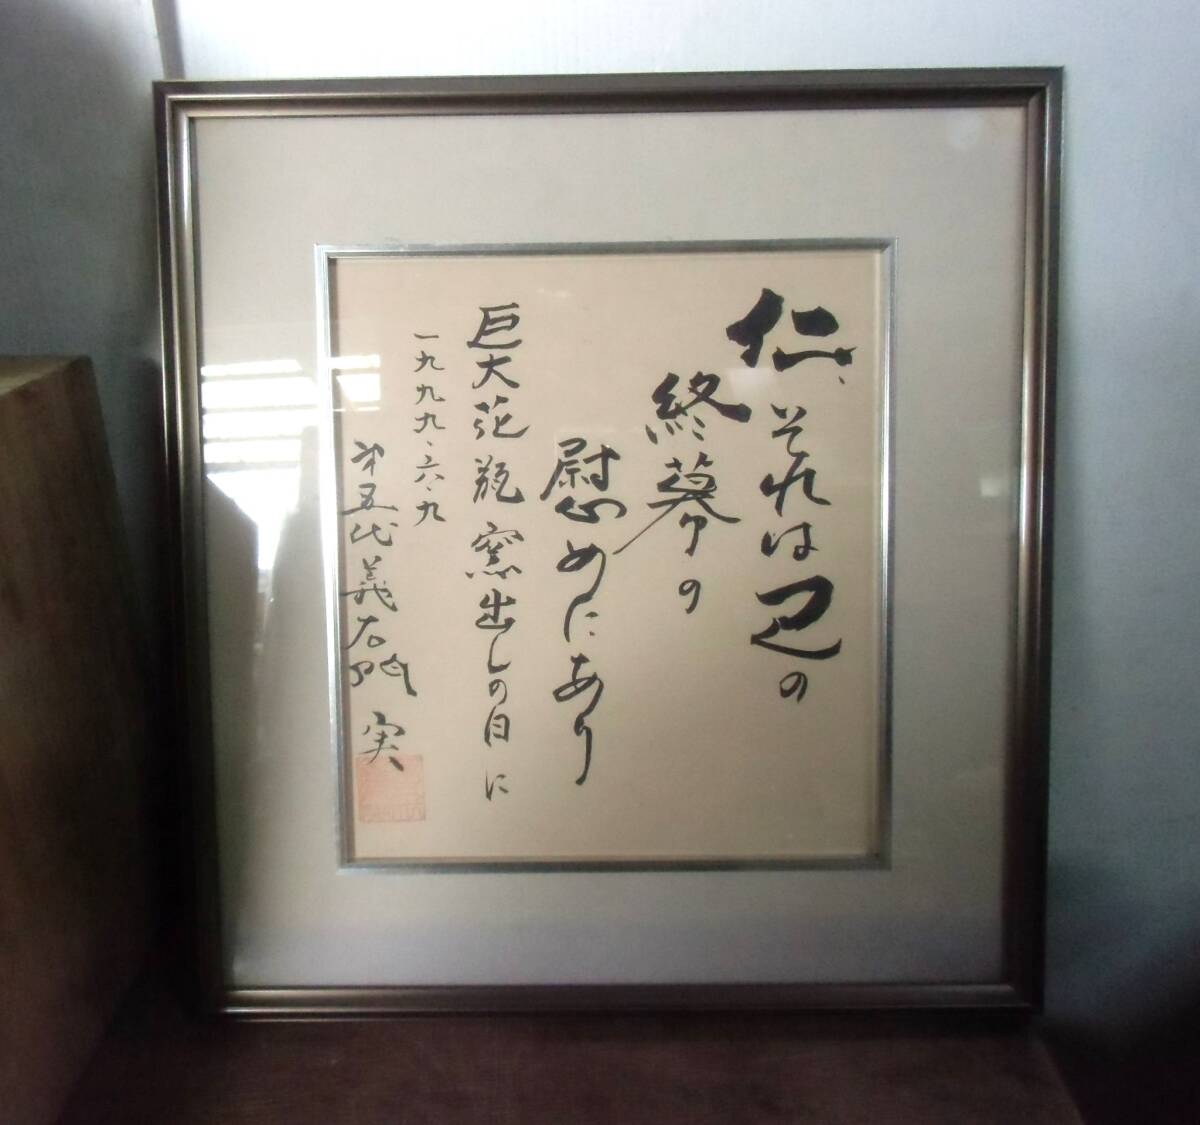 仁、それは己の
終幕の
慰めにあり
巨大花瓶窯出しの日に
一九九九、六、九
五代義 実